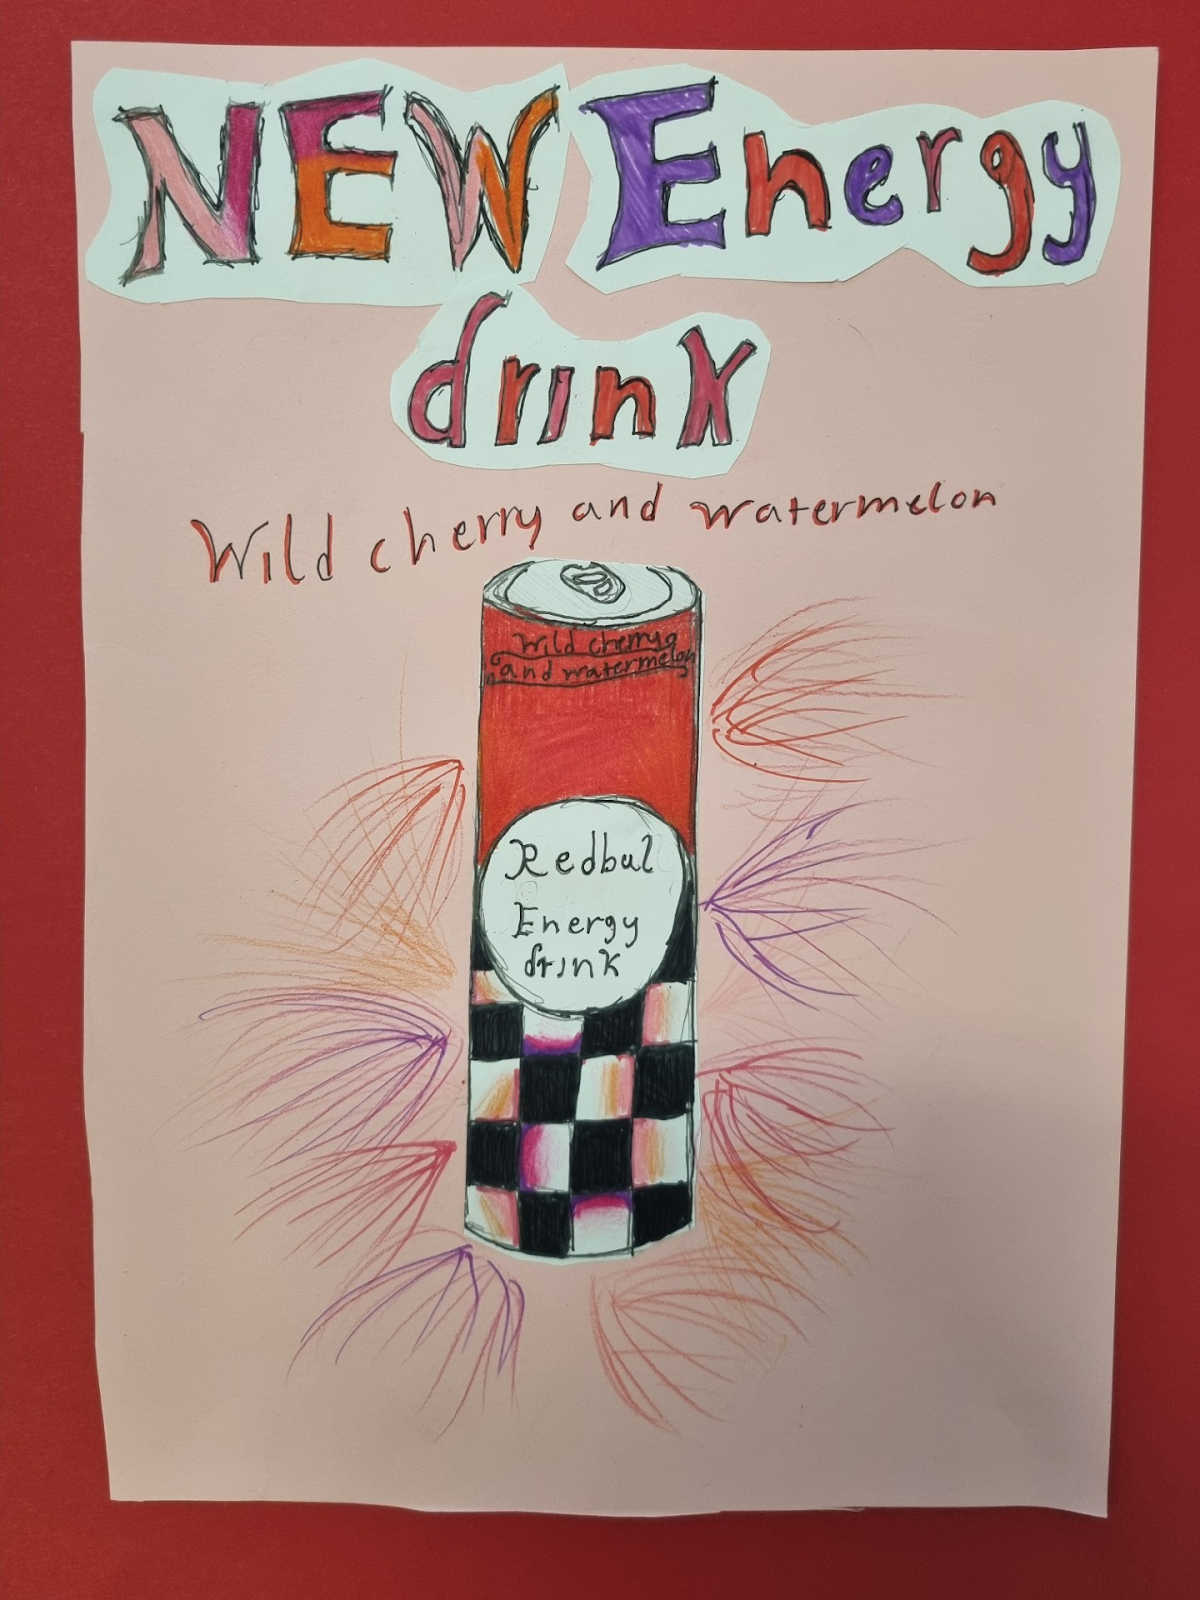 NEW Energy
drink
Wild cherry and watermelon
Wild cherry
and watermelon
Redbul
Energy
drink